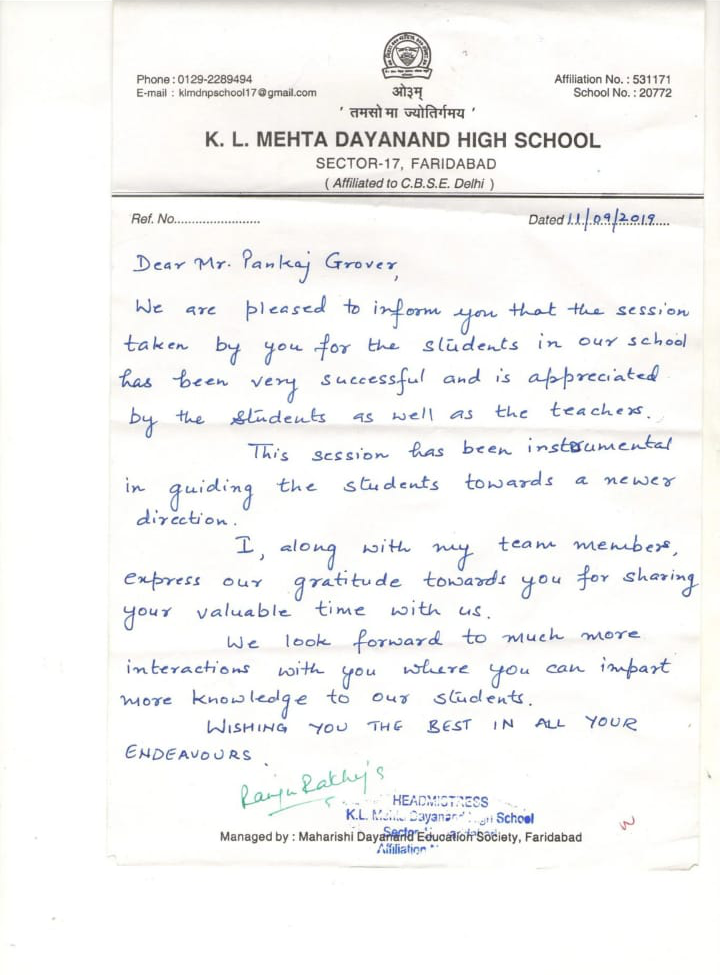 Phone : 0129-2289494
E-mail : klmdnpschool17@gmail.com
Affiliation No. : 531171
School No. : 20772
ओ३म्
' तमसो मा ज्योतिर्गमय '
K. L. MEHTA DAYANAND HIGH SCHOOL
SECTOR-17, FARIDABAD
( Affiliated to C.B.S.E. Delhi )
Ref. No........................ Dated 11/09/2019....
Dear Mr. Pankaj Grover,
We are pleased to inform you that the session
taken by you for the students in our school
has been very successful and is appreciated
by the students as well as the teachers.
This session has been instrumental
in guiding the students towards a newer
direction.
I, along with my team members,
express our gratitude towards you for sharing
your valuable time with us.
We look forward to much more
interactions with you where you can impart
more knowledge to our students.
WISHING YOU THE BEST IN ALL YOUR
ENDEAVOURS.
HEADMISTRESS
K.L. Mehta Dayanand High School
Managed by : Maharishi Dayanand Education Society, Faridabad
Affiliation